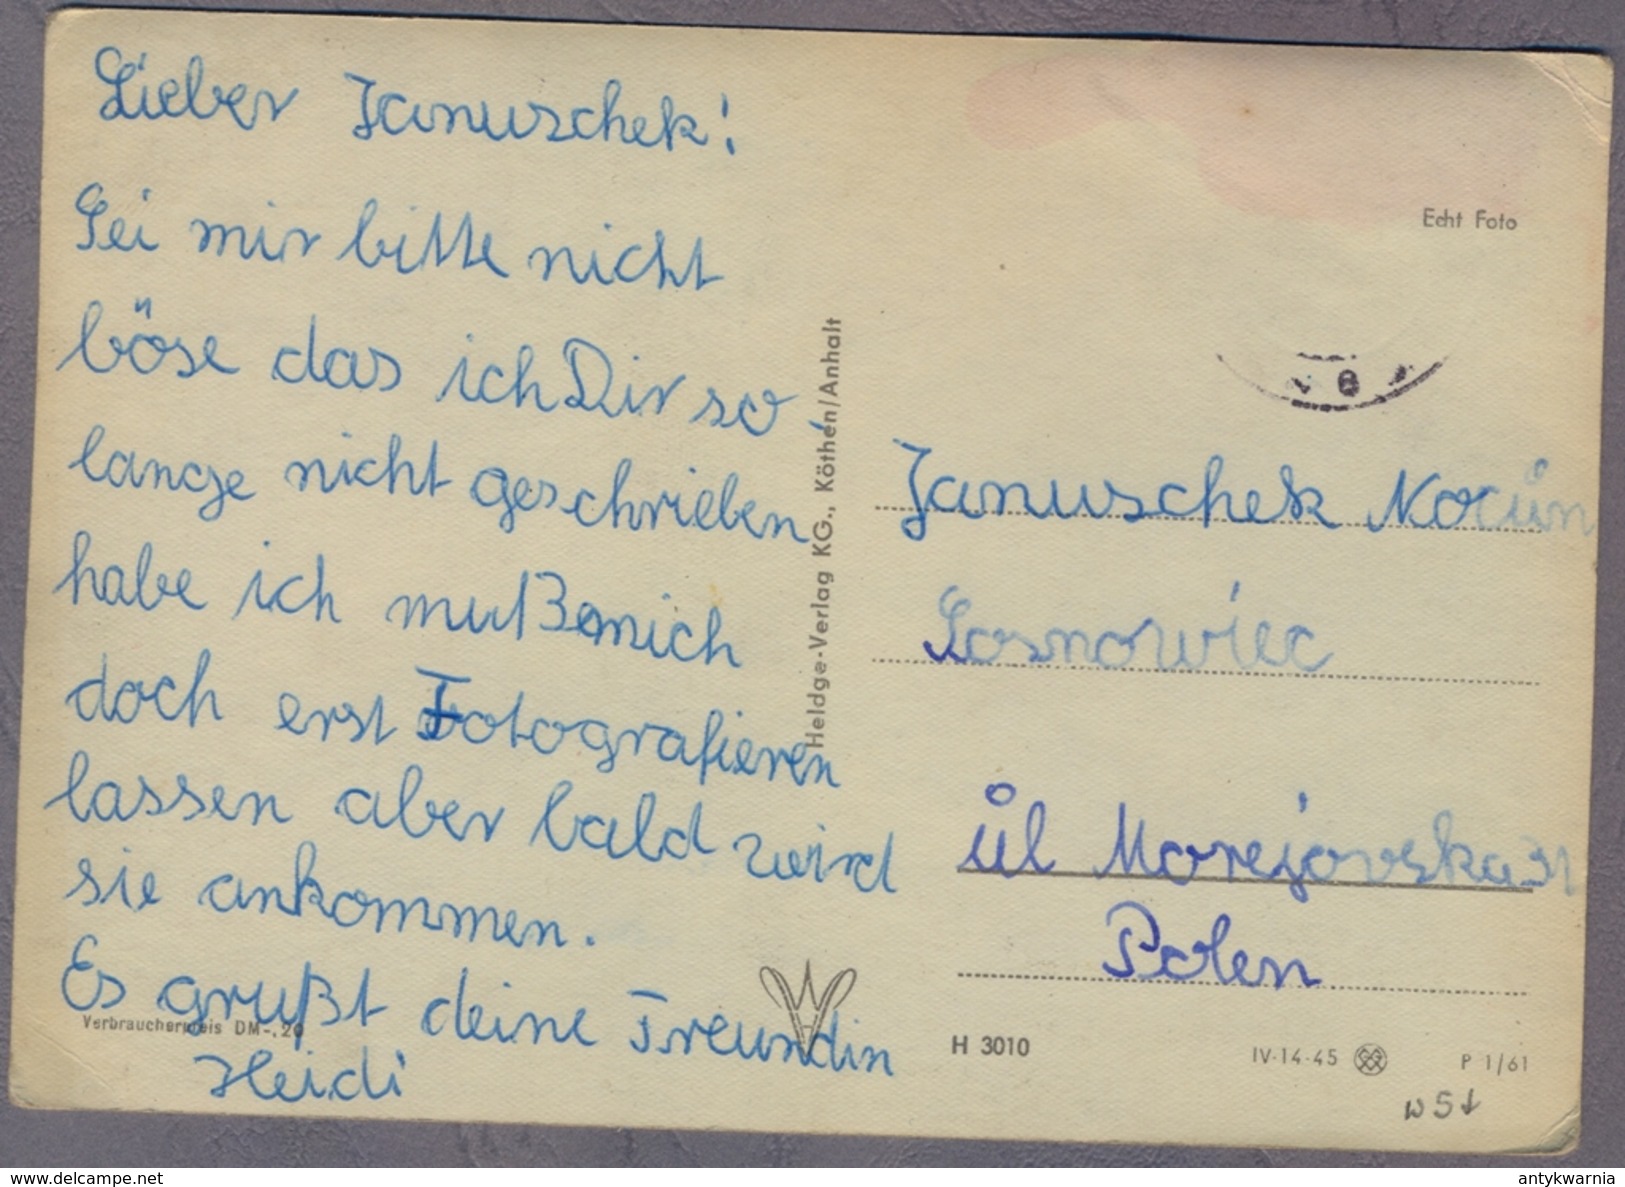 Lieber Januschek!
Sei mir bitte nicht
böse das ich Dir so
lange nicht geschrieben
habe ich muß mich
doch erst Fotografieren
lassen aber bald wird
sie ankommen.
Es grußt deine Freundin
Heidi
Verbraucherpreis DM -.20
Heldge-Verlag KG., Köthen/Anhalt
Echt Foto
Januschek
Sosnowiec
ul Morejovska 31
Polen
H 3010
IV-14-45
P 1/61
antykwarnia.delcampe.net
antykwarnia